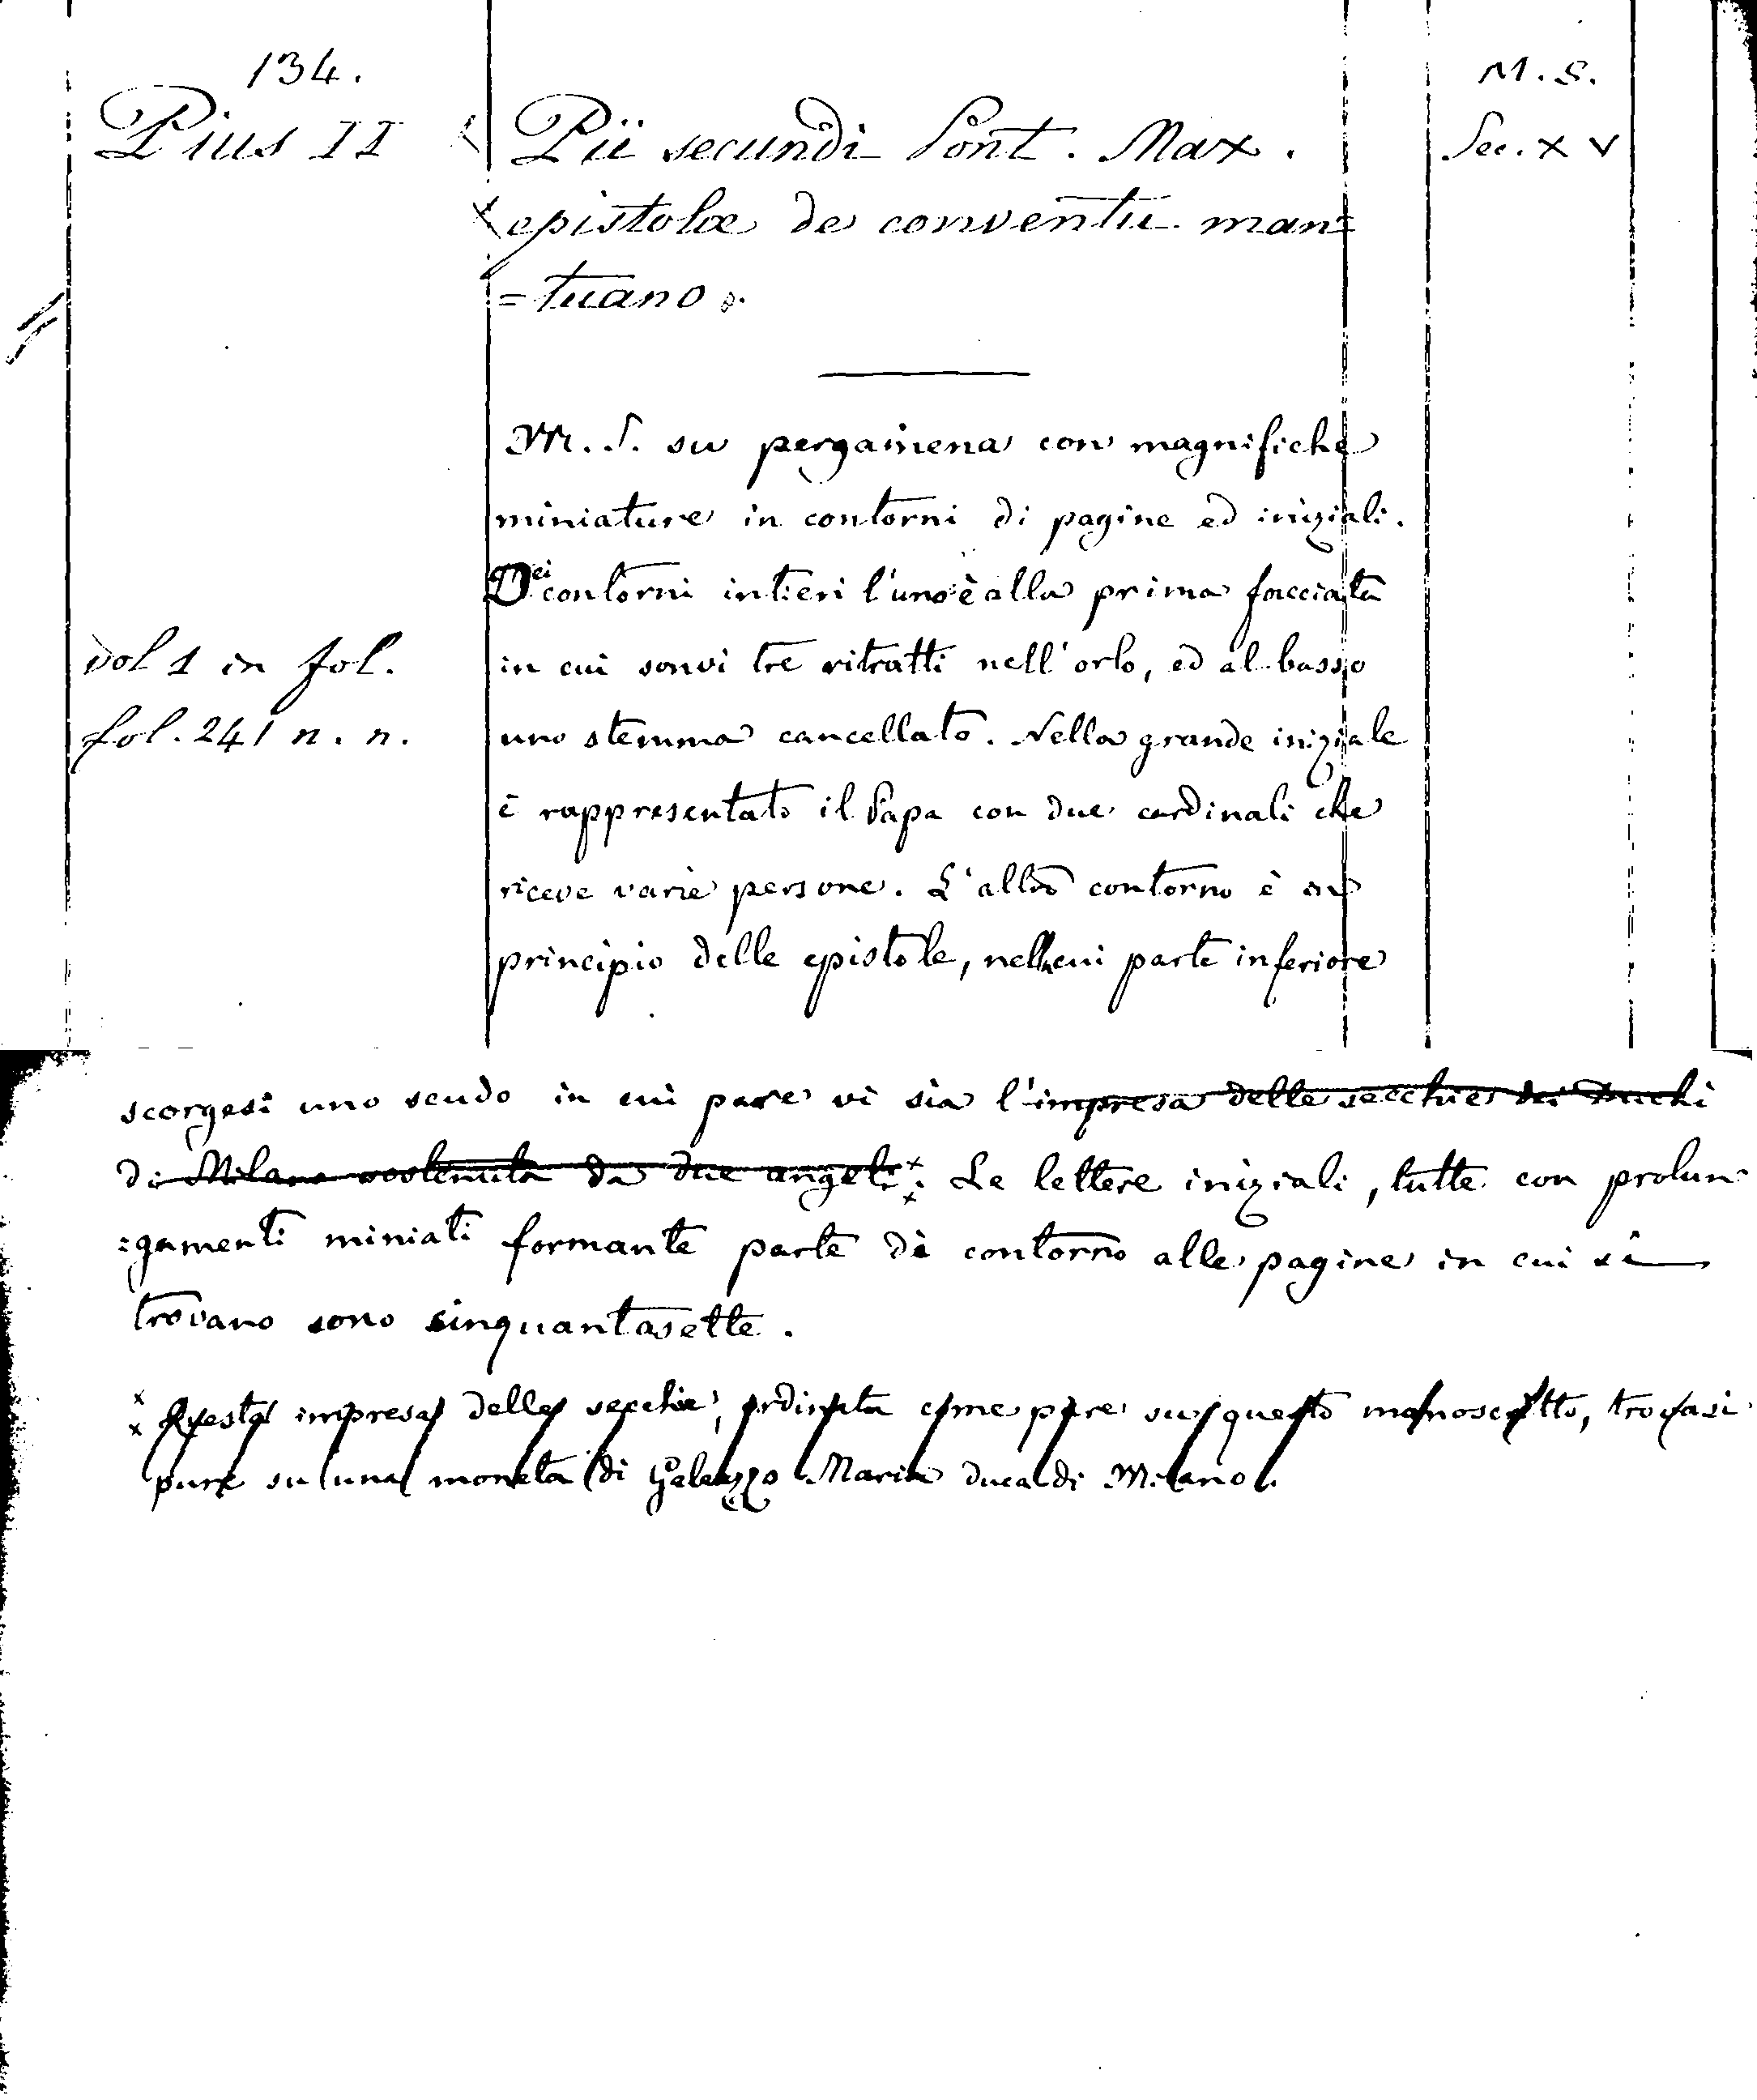 134.
Pius II
vol 1 in fol.
fol. 241 n. n.
Pii secundi Pont. Max.
epistolæ de conventu man=
=tuano.
M. S. su pergamena con magnifiche
miniature in contorni di pagine ed iniziali.
Dei contorni intieri l'uno è alla prima facciata
in cui sonvi tre ritratti nell'orlo, ed al basso
uno stemma cancellato. Nella grande iniziale
è rappresentato il Papa con due cardinali che
riceve varie persone. L'altro contorno è in
principio delle epistole, nella cui parte inferiore
M. S.
Sec. XV
scorgesi uno scudo in cui pare vi sia l'impresa delle secchie dei Duchi
di Milano sostenuta da due angeli. Le lettere iniziali, tutte con prolun
=gamenti miniati formante parte di contorno alle pagine in cui si
trovano sono cinquantasette.
Questa impresa delle secchie, ordinata come pure su questo manoscritto, trovasi
pure su una moneta di Galeazzo Maria duca di Milano.